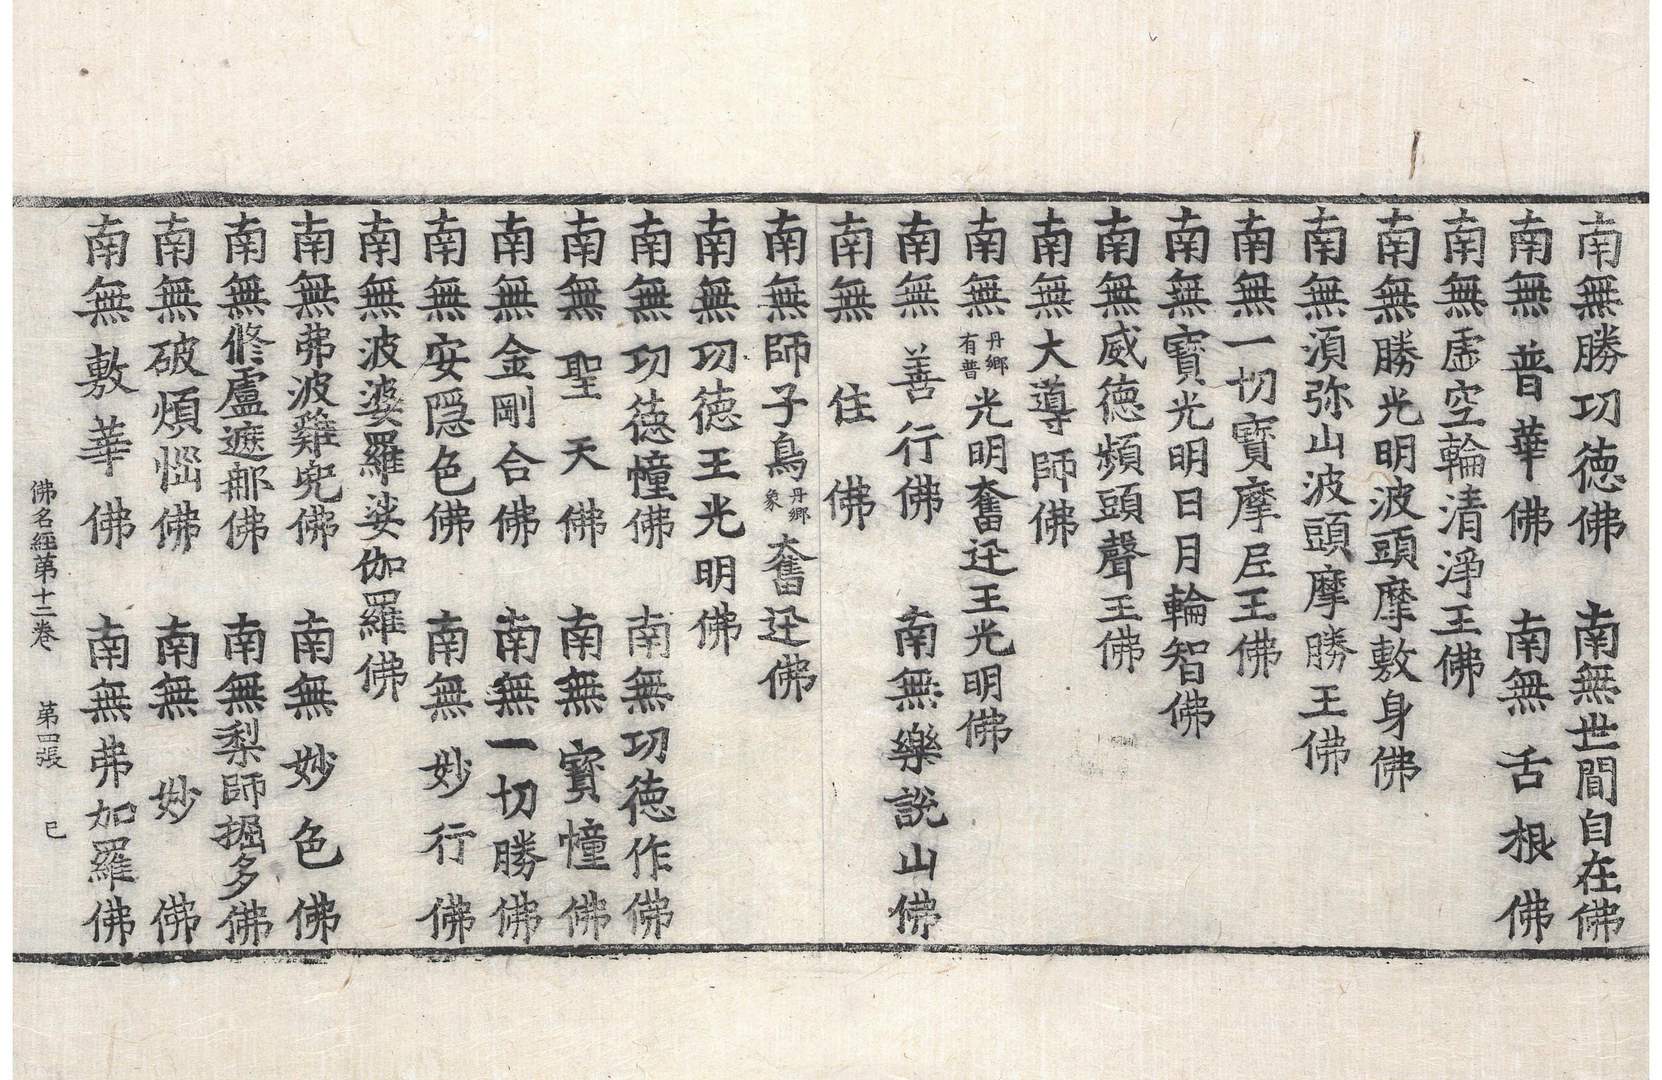 南無勝功德佛　南無世間自在佛
南無普華佛　南無舌根佛
南無虛空輪清淨王佛
南無勝光明波頭摩敷身佛
南無須弥山波頭摩勝王佛
南無一切寶摩尼王佛
南無寶光明日月輪智佛
南無威德頻頭聲王佛
南無大導師佛
南無丹鄉有普光明奮迅王光明佛
南無善行佛　南無樂說山佛
南無住佛
南無師子鳥丹鄉象奮迅佛
南無功德王光明佛
南無功德幢佛　南無功德作佛
南無聖天佛　南無寶幢佛
南無金剛合佛　南無一切勝佛
南無安隱色佛　南無妙行佛
南無波婆羅娑伽羅佛
南無弗波雞兜佛　南無妙色佛
南無修盧遮那佛　南無梨師掘多佛
南無破煩惱佛　南無妙佛
南無敷華佛　南無弗加羅佛
佛名經第十二卷　第四張　已